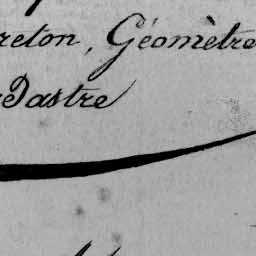 reton, Géomètre
dastre